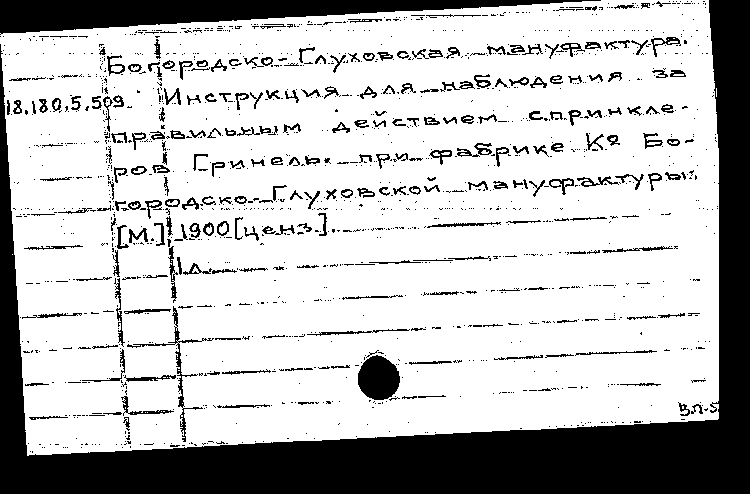 Богородско-Глуховская мануфактура.
18.180.5.509 Инструкция для наблюдения за
правильным действием спринкле-
ров Гринель при фабрике Ко Бо-
городско-Глуховской мануфактуры.
[М.] 1900 [ценз.].
1 л.
В.П-5